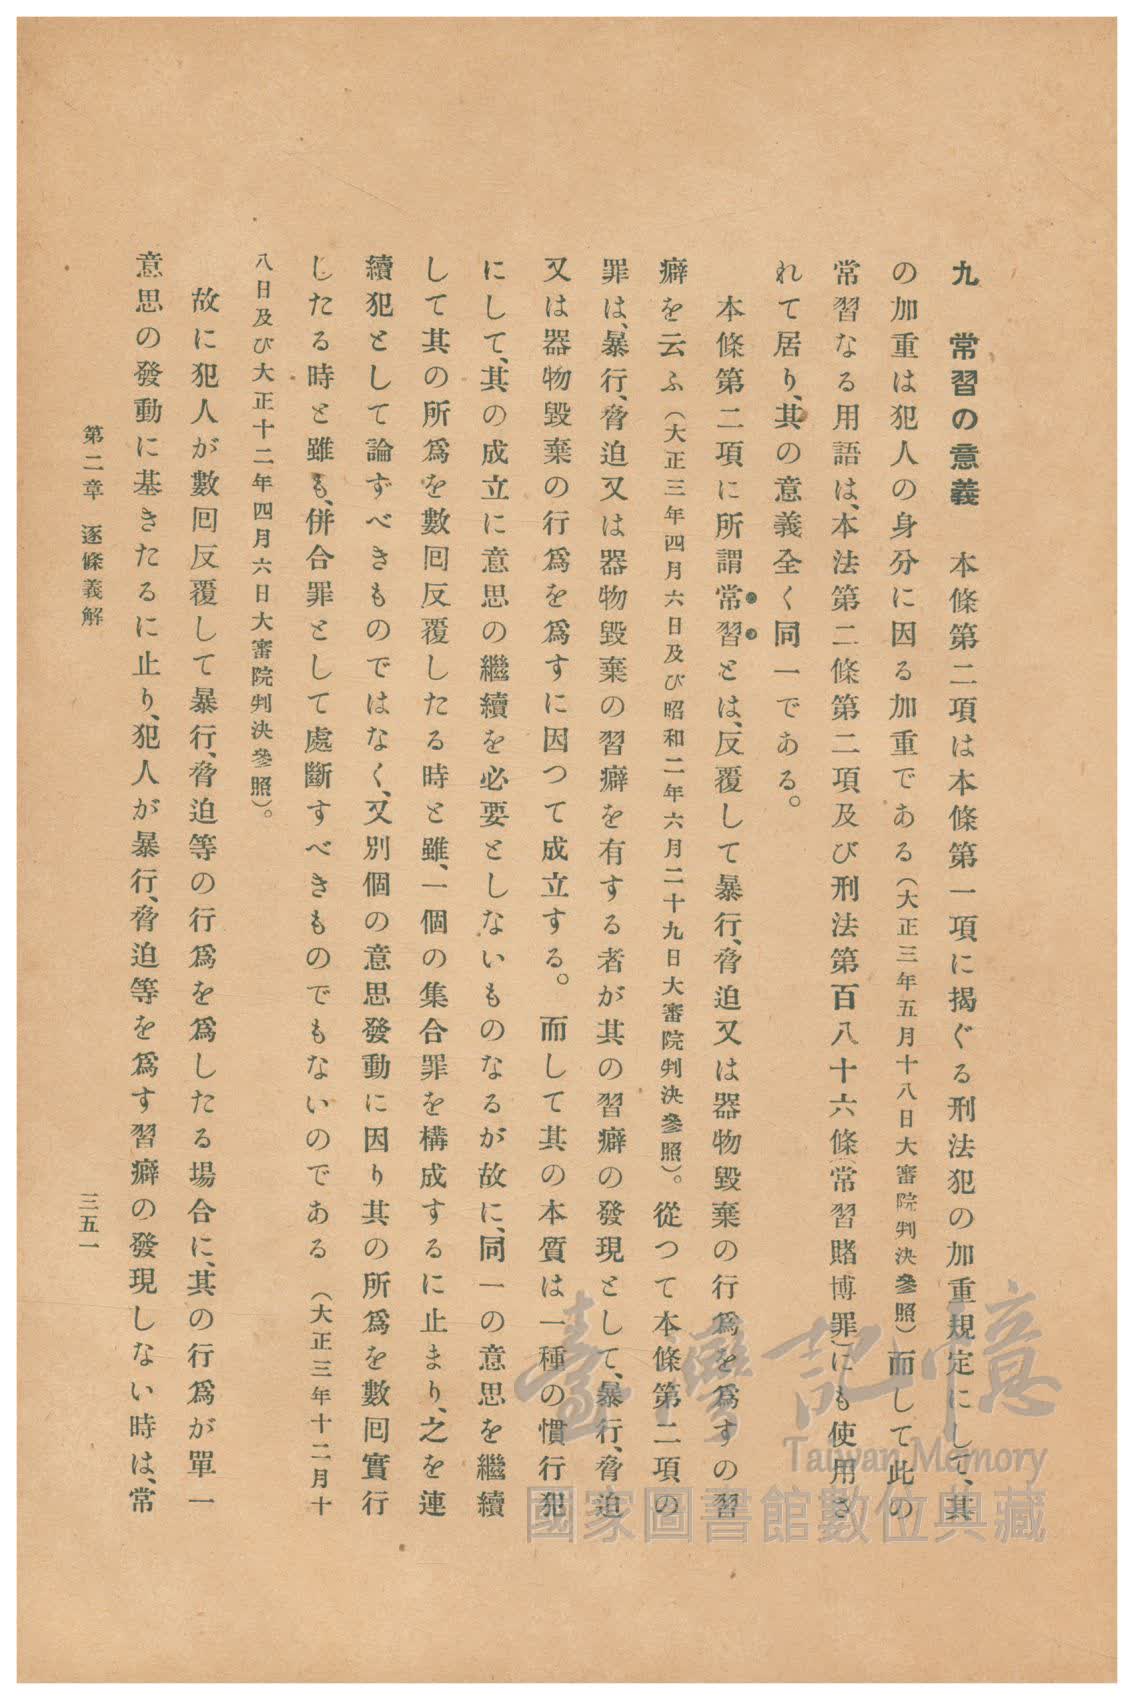 九　常習の意義　本條第二項は本條第一項に揭ぐる刑法犯の加重規定にして、其
の加重は犯人の身分に因る加重である（大正三年五月十八日大審院判決參照）而して此の
常習なる用語は、本法第二條第二項及び刑法第百八十六條（常習賭博罪）にも使用さ
れて居り、其の意義全く同一である。
本條第二項に所謂常習とは、反覆して暴行、脅迫又は器物毀棄の行爲を爲すの習
癖を云ふ（大正三年四月六日及び昭和二年六月二十九日大審院判決參照）。從つて本條第二項の
罪は、暴行、脅迫又は器物毀棄の習癖を有する者が其の習癖の發現として、暴行、脅迫
又は器物毀棄の行爲を爲すに因つて成立する。而して其の本質は一種の慣行犯
にして、其の成立に意思の繼續を必要としないものなるが故に、同一の意思を繼續
して其の所爲を數囘反覆したる時と雖、一個の集合罪を構成するに止まり、之を連
續犯として論ずべきものではなく、又別個の意思發動に因り其の所爲を數囘實行
したる時と雖も、併合罪として處斷すべきものでもないのである（大正三年十二月十
八日及び大正十二年四月六日大審院判決參照）。
故に犯人が數囘反覆して暴行、脅迫等の行爲を爲したる場合に、其の行爲が單一
意思の發動に基きたるに止り、犯人が暴行、脅迫等を爲す習癖の發現しない時は、常
第二章　逐條義解
三五一
臺灣記憶
Taiwan Memory
國家圖書館數位典藏